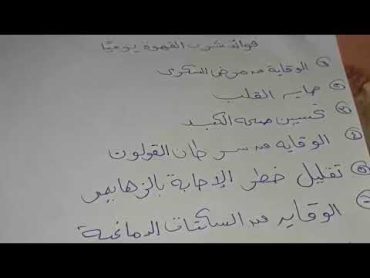 فوائد شرب القهوة يوميًا
الوقاية من مرض السكرى
حماية القلب
تحسين صحة الكبد
الوقاية من سرطان القولون
تقليل خطر الإصابة بالزهايمر
الوقاية من السكتات الدماغية